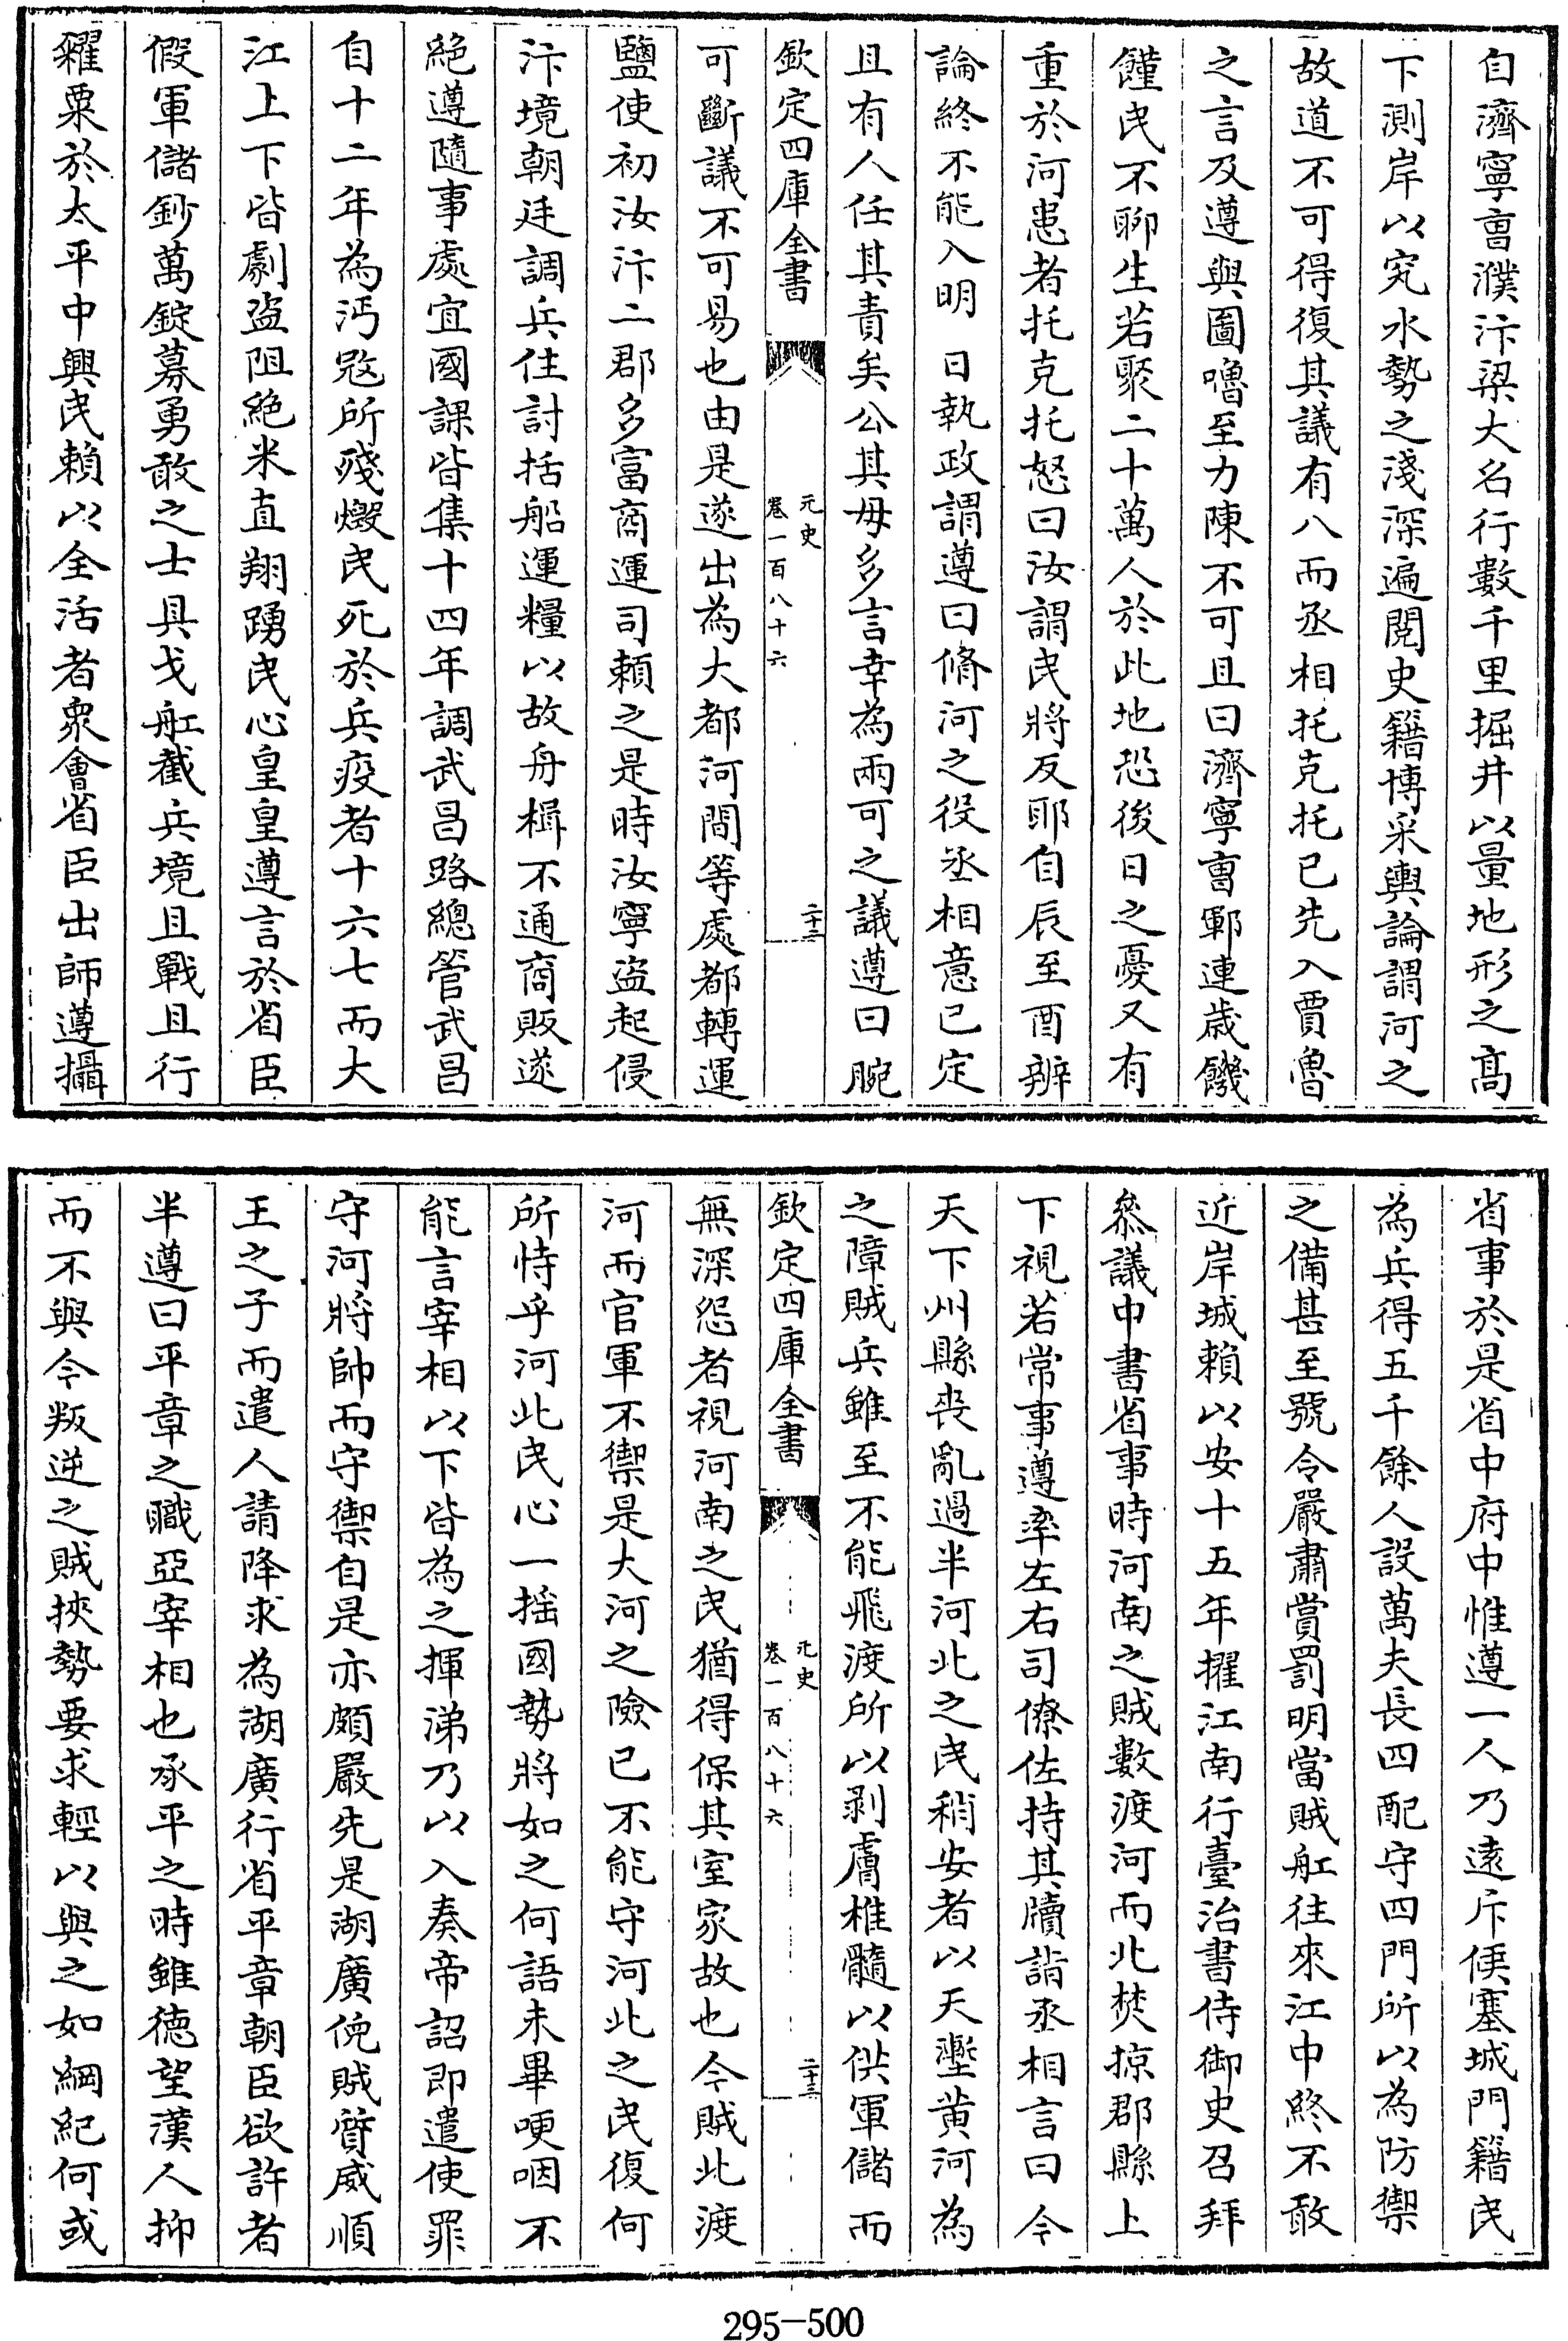 自濟寧曺濮汴梁大名行數千里掘井以量地形之髙
下測岸以究水勢之淺深遍閱史籍博采輿論謂河之
故道不可得復其議有八而丞相托克托已先入賈魯
之言及遵與圖嚕至力陳不可且曰濟寧曺鄆連歲饑
饉民不聊生若聚二十萬人於此地恐後日之憂又有
重於河患者托克托怒曰汝謂民將反耶自辰至酉辨
論終不能入明 日執政謂遵曰脩河之役丞相意已定
且有人任其責矣公其毋多言幸為兩可之議遵曰腕
欽定四庫全書
元史
卷一百八十六
二十二
可斷議不可易也由是遂出為大都河間等處都轉運
鹽使初汝汴二郡多富商運司賴之是時汝寧盗起侵
汴境朝廷調兵徃討括船運糧以故舟楫不通商販遂
絶遵隨事處宜國課皆集十四年調武昌路總管武昌
自十二年為沔宼所殘燬民死於兵疫者十六七而大
江上下皆劇盗阻絶米直翔踴民心皇皇遵言於省臣
假軍儲鈔萬錠募勇敢之士具戈舡截兵境且戰且行
糴粟於太平中興民賴以全活者衆會省臣出師遵攝
省事於是省中府中惟遵一人乃逺斥堠塞城門籍民
為兵得五千餘人設萬夫長四配守四門所以為防禦
之備甚至號令嚴肅賞罰明當賊舡往來江中終不敢
近岸城賴以安十五年擢江南行臺治書侍御史召拜
叅議中書省事時河南之賊數渡河而北焚掠郡縣上
下視若常事遵率左右司僚佐持其牘詣丞相言曰今
天下州縣喪亂過半河北之民稍安者以天塹黄河為
之障賊兵雖至不能飛渡所以剥膚椎髓以供軍儲而
欽定四庫全書
元史
卷一百八十六
二十三
無深怨者視河南之民猶得保其室家故也今賊北渡
河而官軍不禦是大河之險已不能守河北之民復何
所恃乎河北民心一揺國勢將如之何語未畢哽咽不
能言宰相以下皆為之揮涕乃以入奏帝詔即遣使罪
守河將帥而守禦自是亦頗嚴先是湖廣倪賊質威順
王之子而遣人請降求為湖廣行省平章朝臣欲許者
半遵曰平章之職亞宰相也承平之時雖徳望漢人抑
而不與今叛逆之賊挾勢要求輕以與之如綱紀何或
295-500